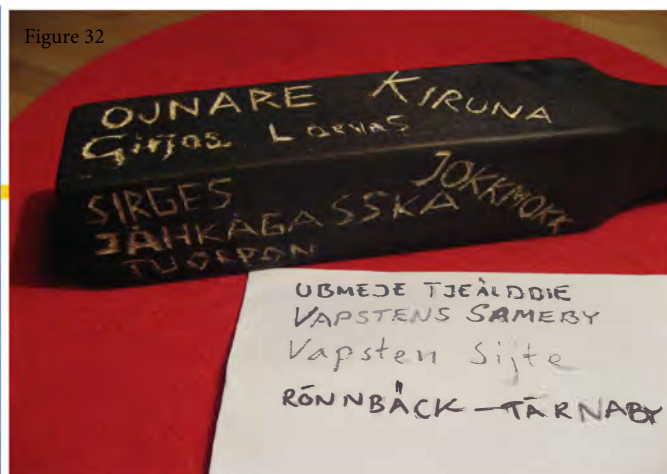 Figure 32
OJNARE KIRUNA
Girjas Laevas
SIRGES JOKKMOKK
JÅHKÅGASSKA
TUORPON
UBMEJE TJEÄLDDIE
VAPSTENS SAMEBY
Vapsten Sijte
RÖNNBÄCK – TÄRNABY